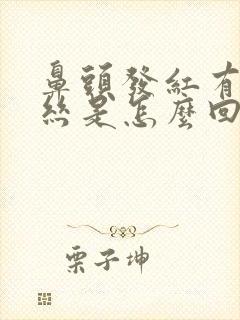 鼻頭發紅有
絲是怎麼回
栗子坤